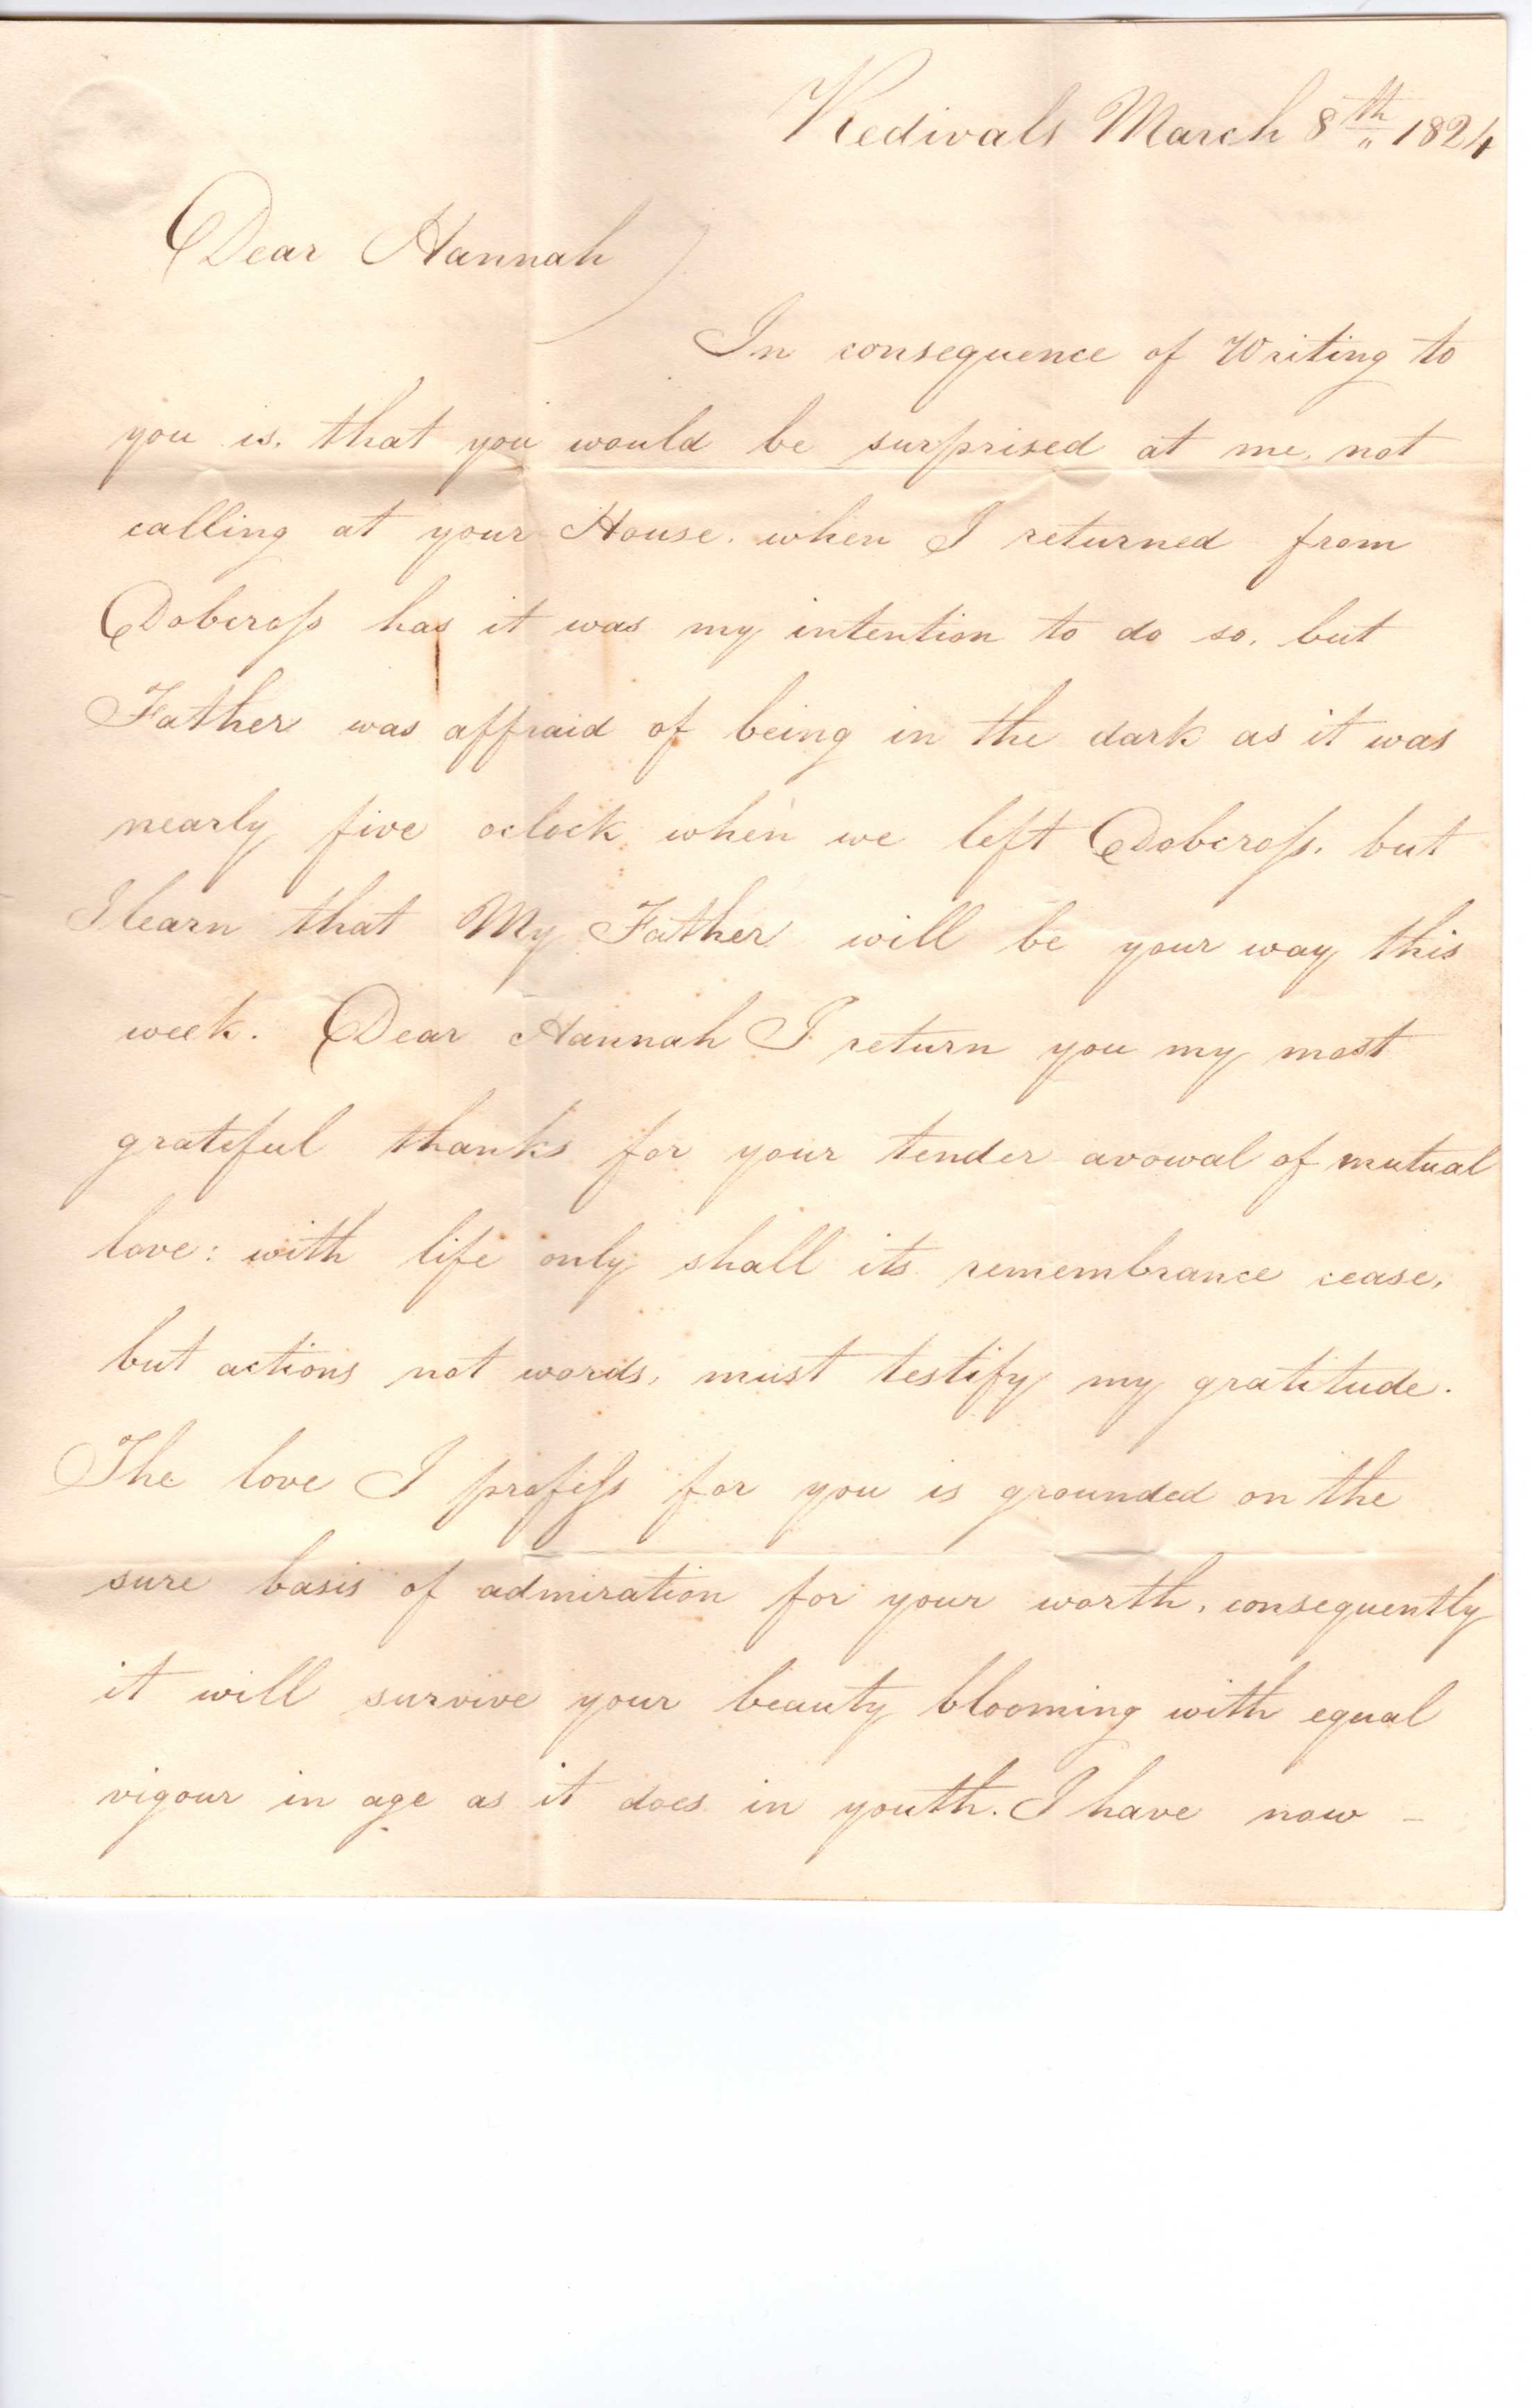 Redivals March 8th 1824
Dear Hannah
In consequence of Writing to
you is. that you would be surprised at me. not
calling at your House. when I returned from
Dobcroſs has it was my intention to do so. but
Father was affraid of being in the dark as it was
nearly five oclock when we left Dobcroſs. but
I learn that My Father will be your way this
week. Dear Hannah I return you my most
grateful thanks for your tender avowal of mutual
love: with life only shall its remembrance cease,
but actions not words, must testify my gratitude.
The love I profeſs for you is grounded on the
sure basis of admiration for your worth, consequently
it will survive your beauty blooming with equal
vigour in age as it does in youth. I have now -